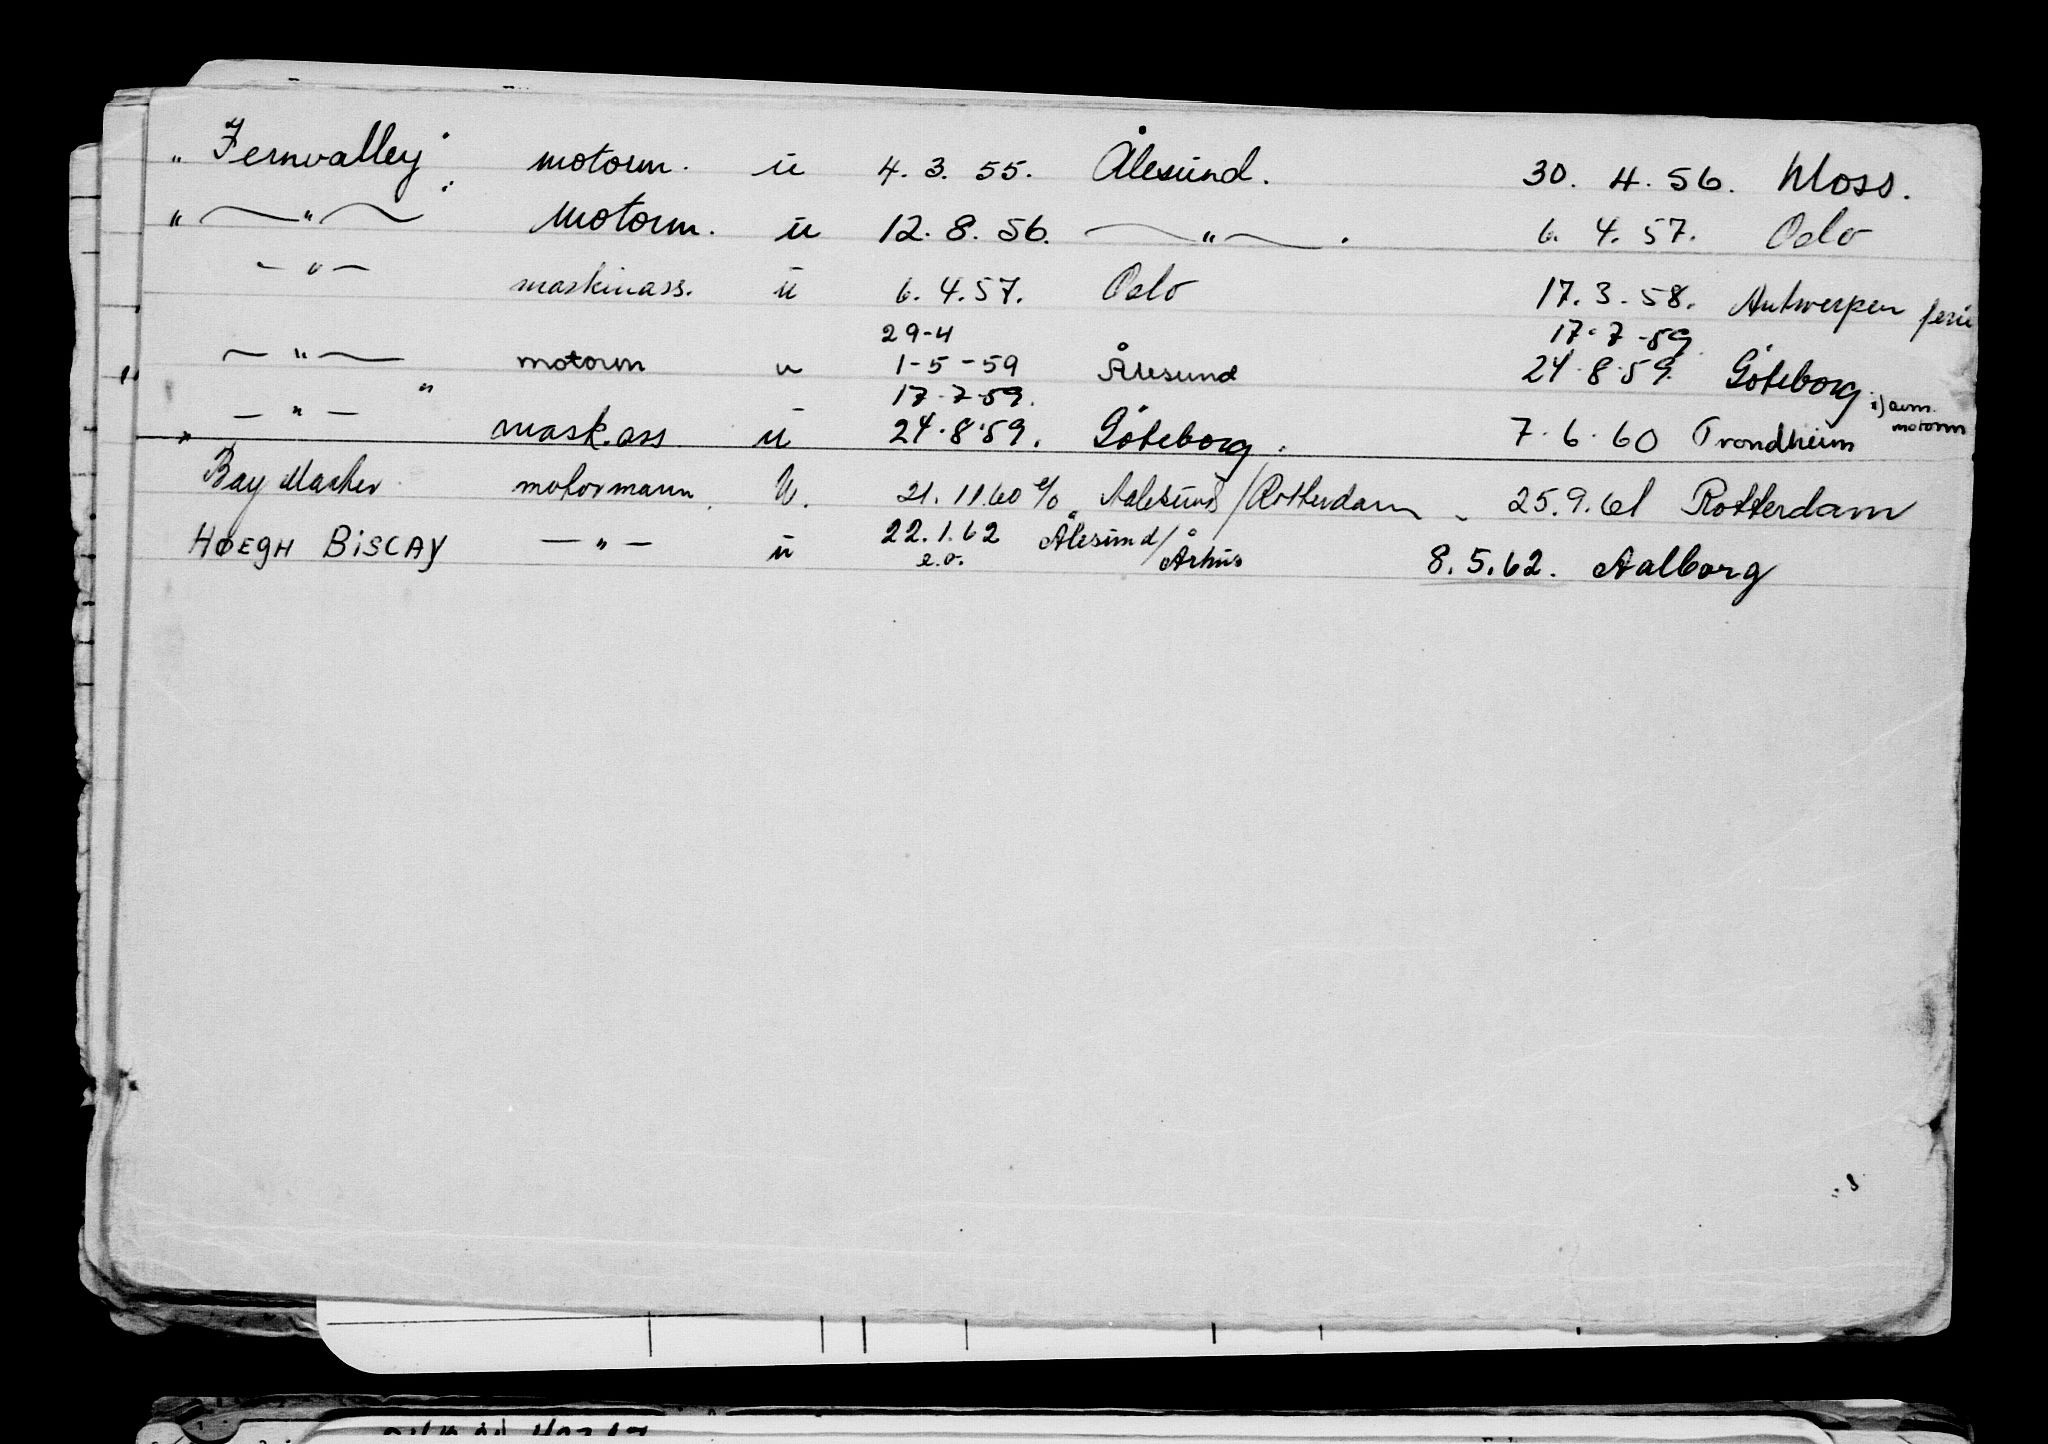 „ Fernvalley" motorm. u 4. 3. 55. Ålesund. 30. 4. 56. Moss.
„ — " — motorm. u 12. 8. 56. — " — . 6. 4. 57. Oslo
— " — maskinass. u 6. 4. 57. Oslo 17. 3. 58. Antwerpen ferie
29-4 17·7-59
— " — motorm u 1-5-59 Ålesund 24·8·59. Göteborg
17-7-59. 1) avm. motorm
— " — mask.ass u 24·8·59. Göteborg. 7·6·60 Trondheim
Bay Master motormann. U. 21.11.60 e/o Aalesund/Rotterdam - 25.9.61 Rotterdam
HØEGH BISCAY — " — u 22.1.62 Ålesund/Århus 8.5.62. Aalborg
e.o.